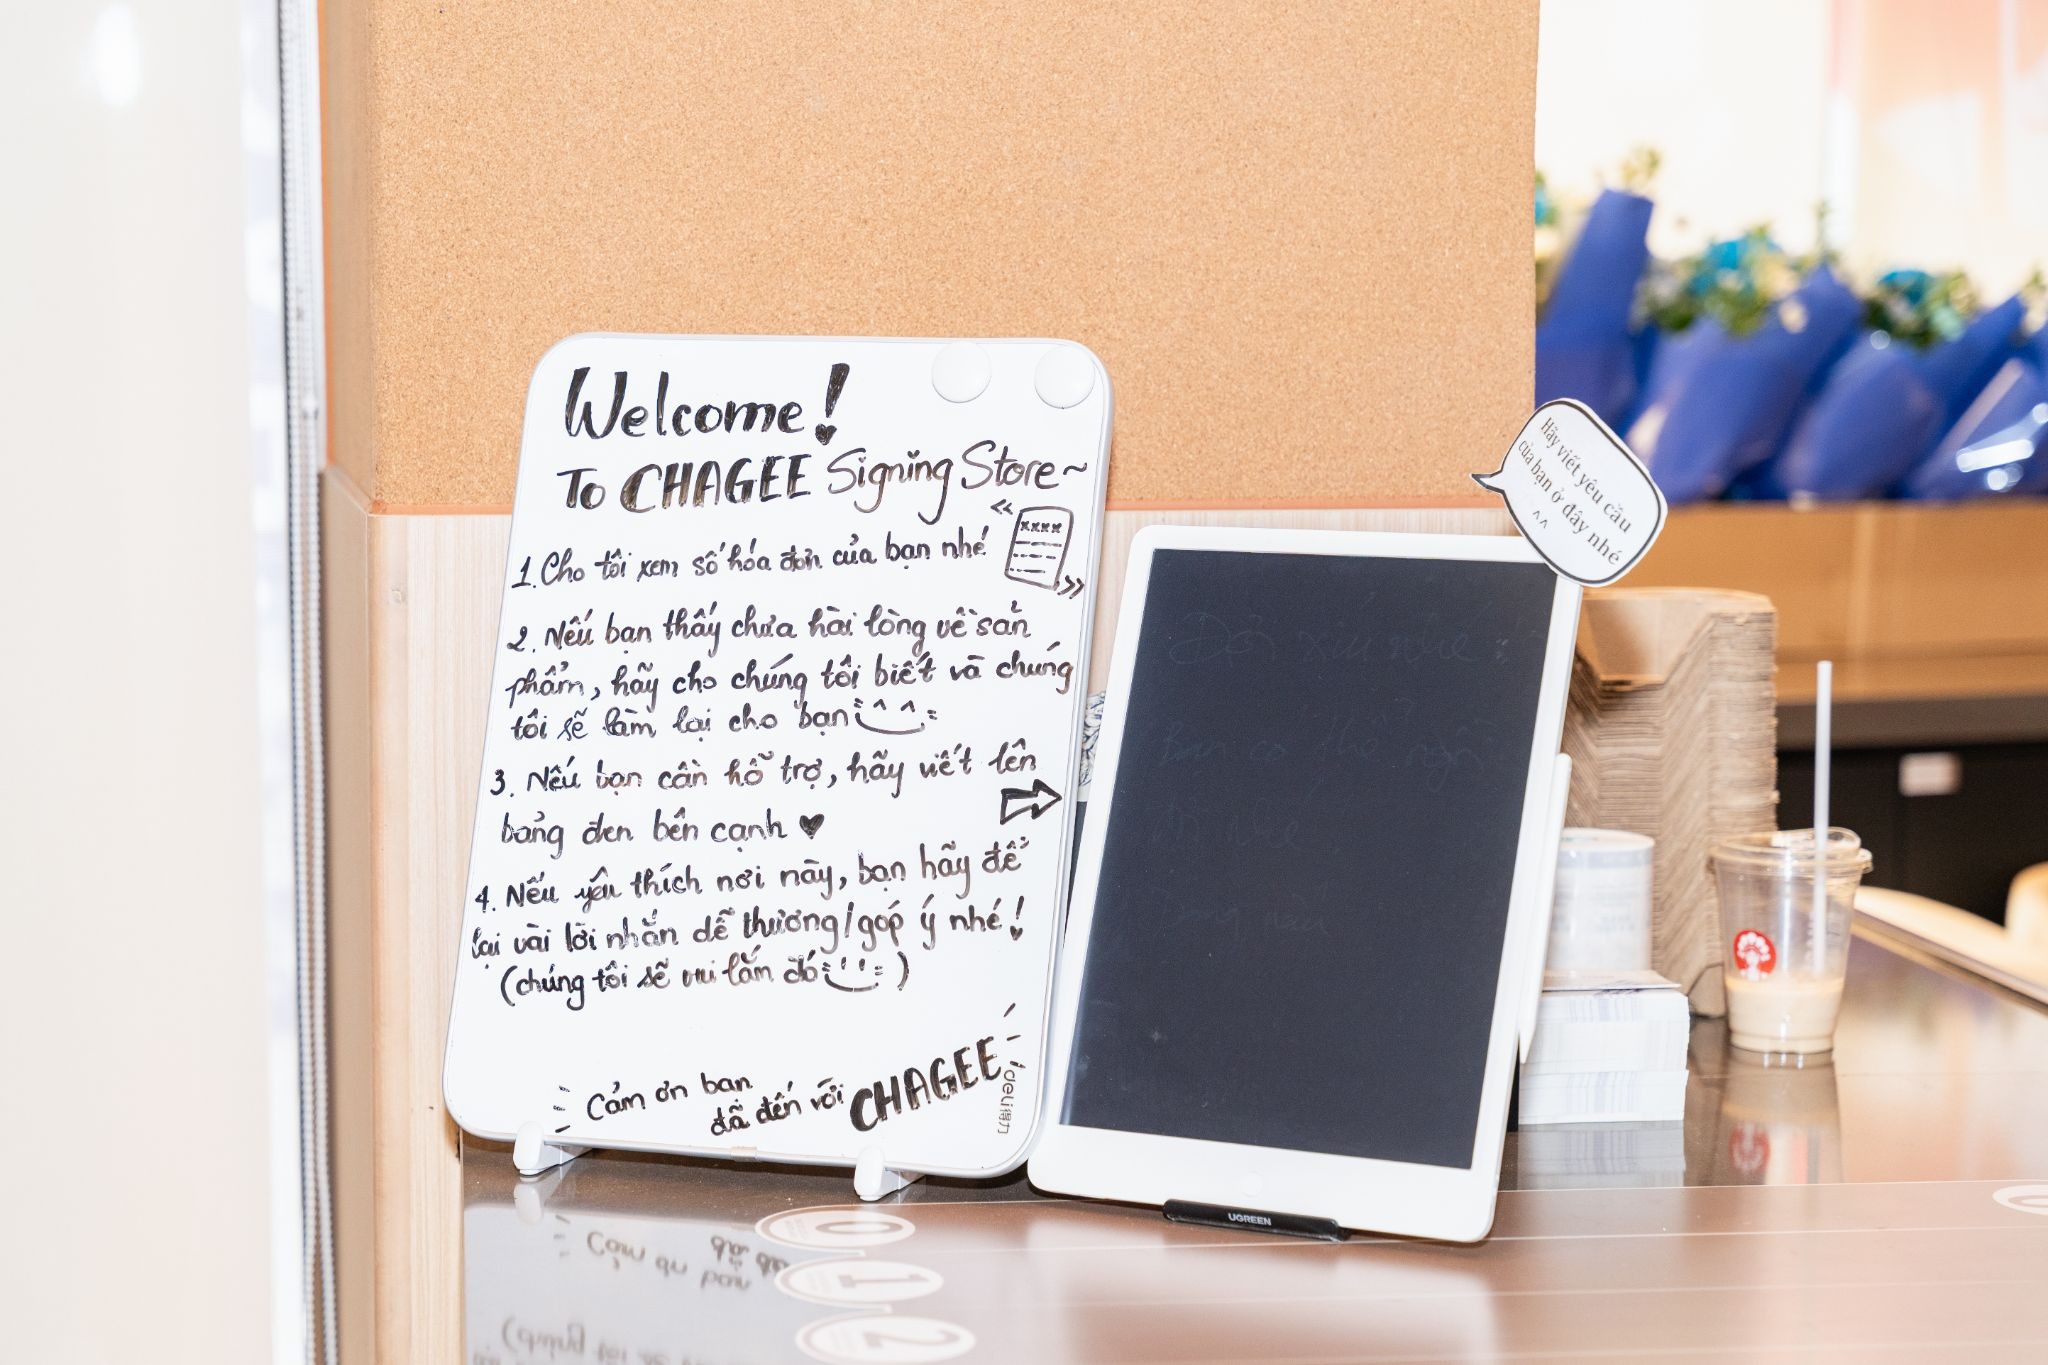 Welcome!
To CHAGEE Signing Store~
1. Cho tôi xem số hóa đơn của bạn nhé
xxxx
2. Nếu bạn thấy chưa hài lòng về sản
phẩm, hãy cho chúng tôi biết và chúng
tôi sẽ làm lại cho bạn
3. Nếu bạn cần hỗ trợ, hãy viết lên
bảng đen bên cạnh ♥
4. Nếu yêu thích nơi này, bạn hãy để
lại vài lời nhắn dễ thương/góp ý nhé!
(chúng tôi sẽ vui lắm đó )
Cảm ơn bạn
đã đến với CHAGEE
deli得力
Hãy viết yêu cầu
của bạn ở đây nhé
^^
UGREEN
0
1
2